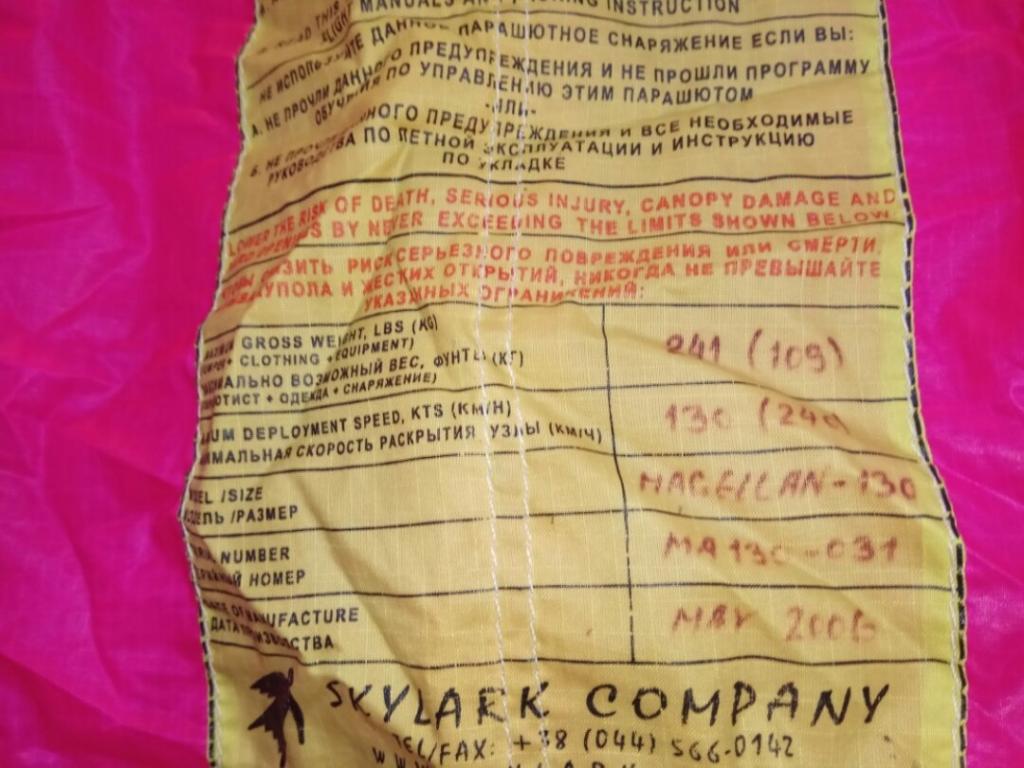 MANUALS AND PACKING INSTRUCTION
READ THIS
НЕ ИСПОЛЬЗУЙТЕ ДАННОЕ ПАРАШЮТНОЕ СНАРЯЖЕНИЕ ЕСЛИ ВЫ:
А. НЕ ПРОЧЛИ ДАННОГО ПРЕДУПРЕЖДЕНИЯ И НЕ ПРОШЛИ ПРОГРАММУ
ОБУЧЕНИЯ ПО УПРАВЛЕНИЮ ЭТИМ ПАРАШЮТОМ
-ИЛИ-
Б. НЕ ПРОЧЛИ ДАННОГО ПРЕДУПРЕЖДЕНИЯ И ВСЕ НЕОБХОДИМЫЕ
РУКОВОДСТВА ПО ЛЕТНОЙ ЭКСПЛУАТАЦИИ И ИНСТРУКЦИЮ
ПО УКЛАДКЕ
LOWER THE RISK OF DEATH, SERIOUS INJURY, CANOPY DAMAGE AND
HARD OPENINGS BY NEVER EXCEEDING THE LIMITS SHOWN BELOW
СНИЗИТЬ РИСК СЕРЬЕЗНОГО ПОВРЕЖДЕНИЯ ИЛИ СМЕРТИ,
КУПОЛА И ЖЕСТКИХ ОТКРЫТИЙ, НИКОГДА НЕ ПРЕВЫШАЙТЕ
УКАЗАННЫХ ОГРАНИЧЕНИЙ:
MAXIMUM GROSS WEIGHT, LBS (KG)
(JUMPER + CLOTHING + EQUIPMENT)
МАКСИМАЛЬНО ВОЗМОЖНЫЙ ВЕС, ФУНТЫ (КГ)
(ПАРАШЮТИСТ + ОДЕЖДА + СНАРЯЖЕНИЕ)
241 (109)
MAXIMUM DEPLOYMENT SPEED, KTS (KM/H)
МАКСИМАЛЬНАЯ СКОРОСТЬ РАСКРЫТИЯ УЗЛЫ (КМ/Ч)
130 (240)
MODEL /SIZE
МОДЕЛЬ /РАЗМЕР
MAGELLAN-130
SERIAL NUMBER
СЕРИЙНЫЙ НОМЕР
MA130-031
DATE OF MANUFACTURE
ДАТА ПРОИЗВОДСТВА
MAY 2006
SKYLARK COMPANY
TEL/FAX: +38 (044) 566-0142